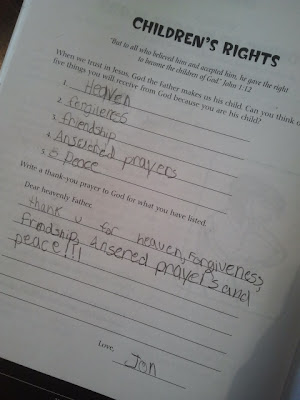 CHILDREN'S RIGHTS
"But to all who believed him and accepted him, he gave the right
to become the children of God." John 1:12
When we trust in Jesus, God the Father makes us his child. Can you think of
five things you will receive from God because you are his child?
1. Heaven
2. Forgiveness
3. friendship
4. Ansered prayers
5. Peace
Write a thank-you prayer to God for what you have listed.
Dear heavenly Father,
thank u for heaven, Forgiveness,
friendship, Ansered prayers and
peace!!!
Love,
Jon